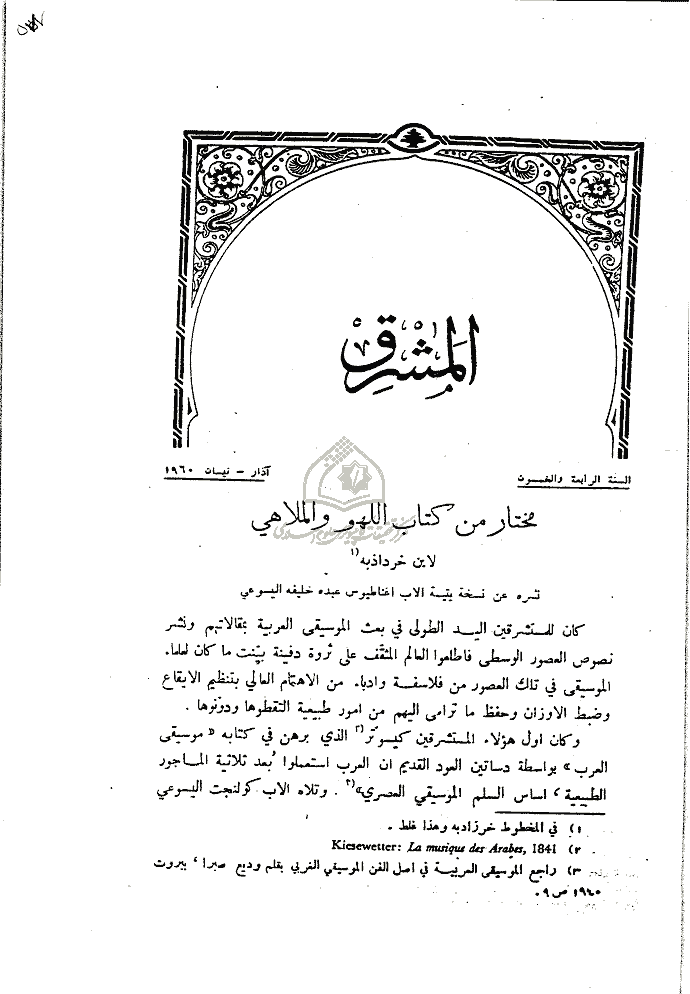 المشرق
السنة الرابعة والخمسون
آذار – نيسان ١٩٦٠
مختار من كتاب اللهو والملاهي
لابن خرداذبه(١
نشره عن نسخة يتيمة الاب اغناطيوس عبده خليفه اليسوعي
كان للمستشرقين اليد الطولى في بعث الموسيقى العربية بمقالاتهم ونشر
نصوص العصور الوسطى فاطلعوا العالم المثقّف على ثروة دفينة بيّنت ما كان لعلماء
الموسيقى في تلك العصور من فلاسفة وادباء من الاهتمام العالي بتنظيم الايقاع
وضبط الاوزان وحفظ ما ترامى اليهم من امور طبيعية التقطوها ودوّنوها .
وكان اول هؤلاء المستشرقين كيسوتّر(٢ الذي برهن في كتابه « موسيقى
العرب » بواسطة دساتين العود القديم ان العرب استعملوا ’بعد ثلاثية الماجور
الطبيعية ، اساس السلم الموسيقي العصري»(٣ . وتلاه الاب كولنجت اليسوعي
١) في المخطوط خرزادبه وهذا غلط .
٢) Kiesewetter: La musique des Arabes, 1841 .
٣) راجع الموسيقى العربية في اصل الفن الموسيقي الغربي بقلم وديع صبرا ، بيروت
١٩٤٠ ص ٩ .